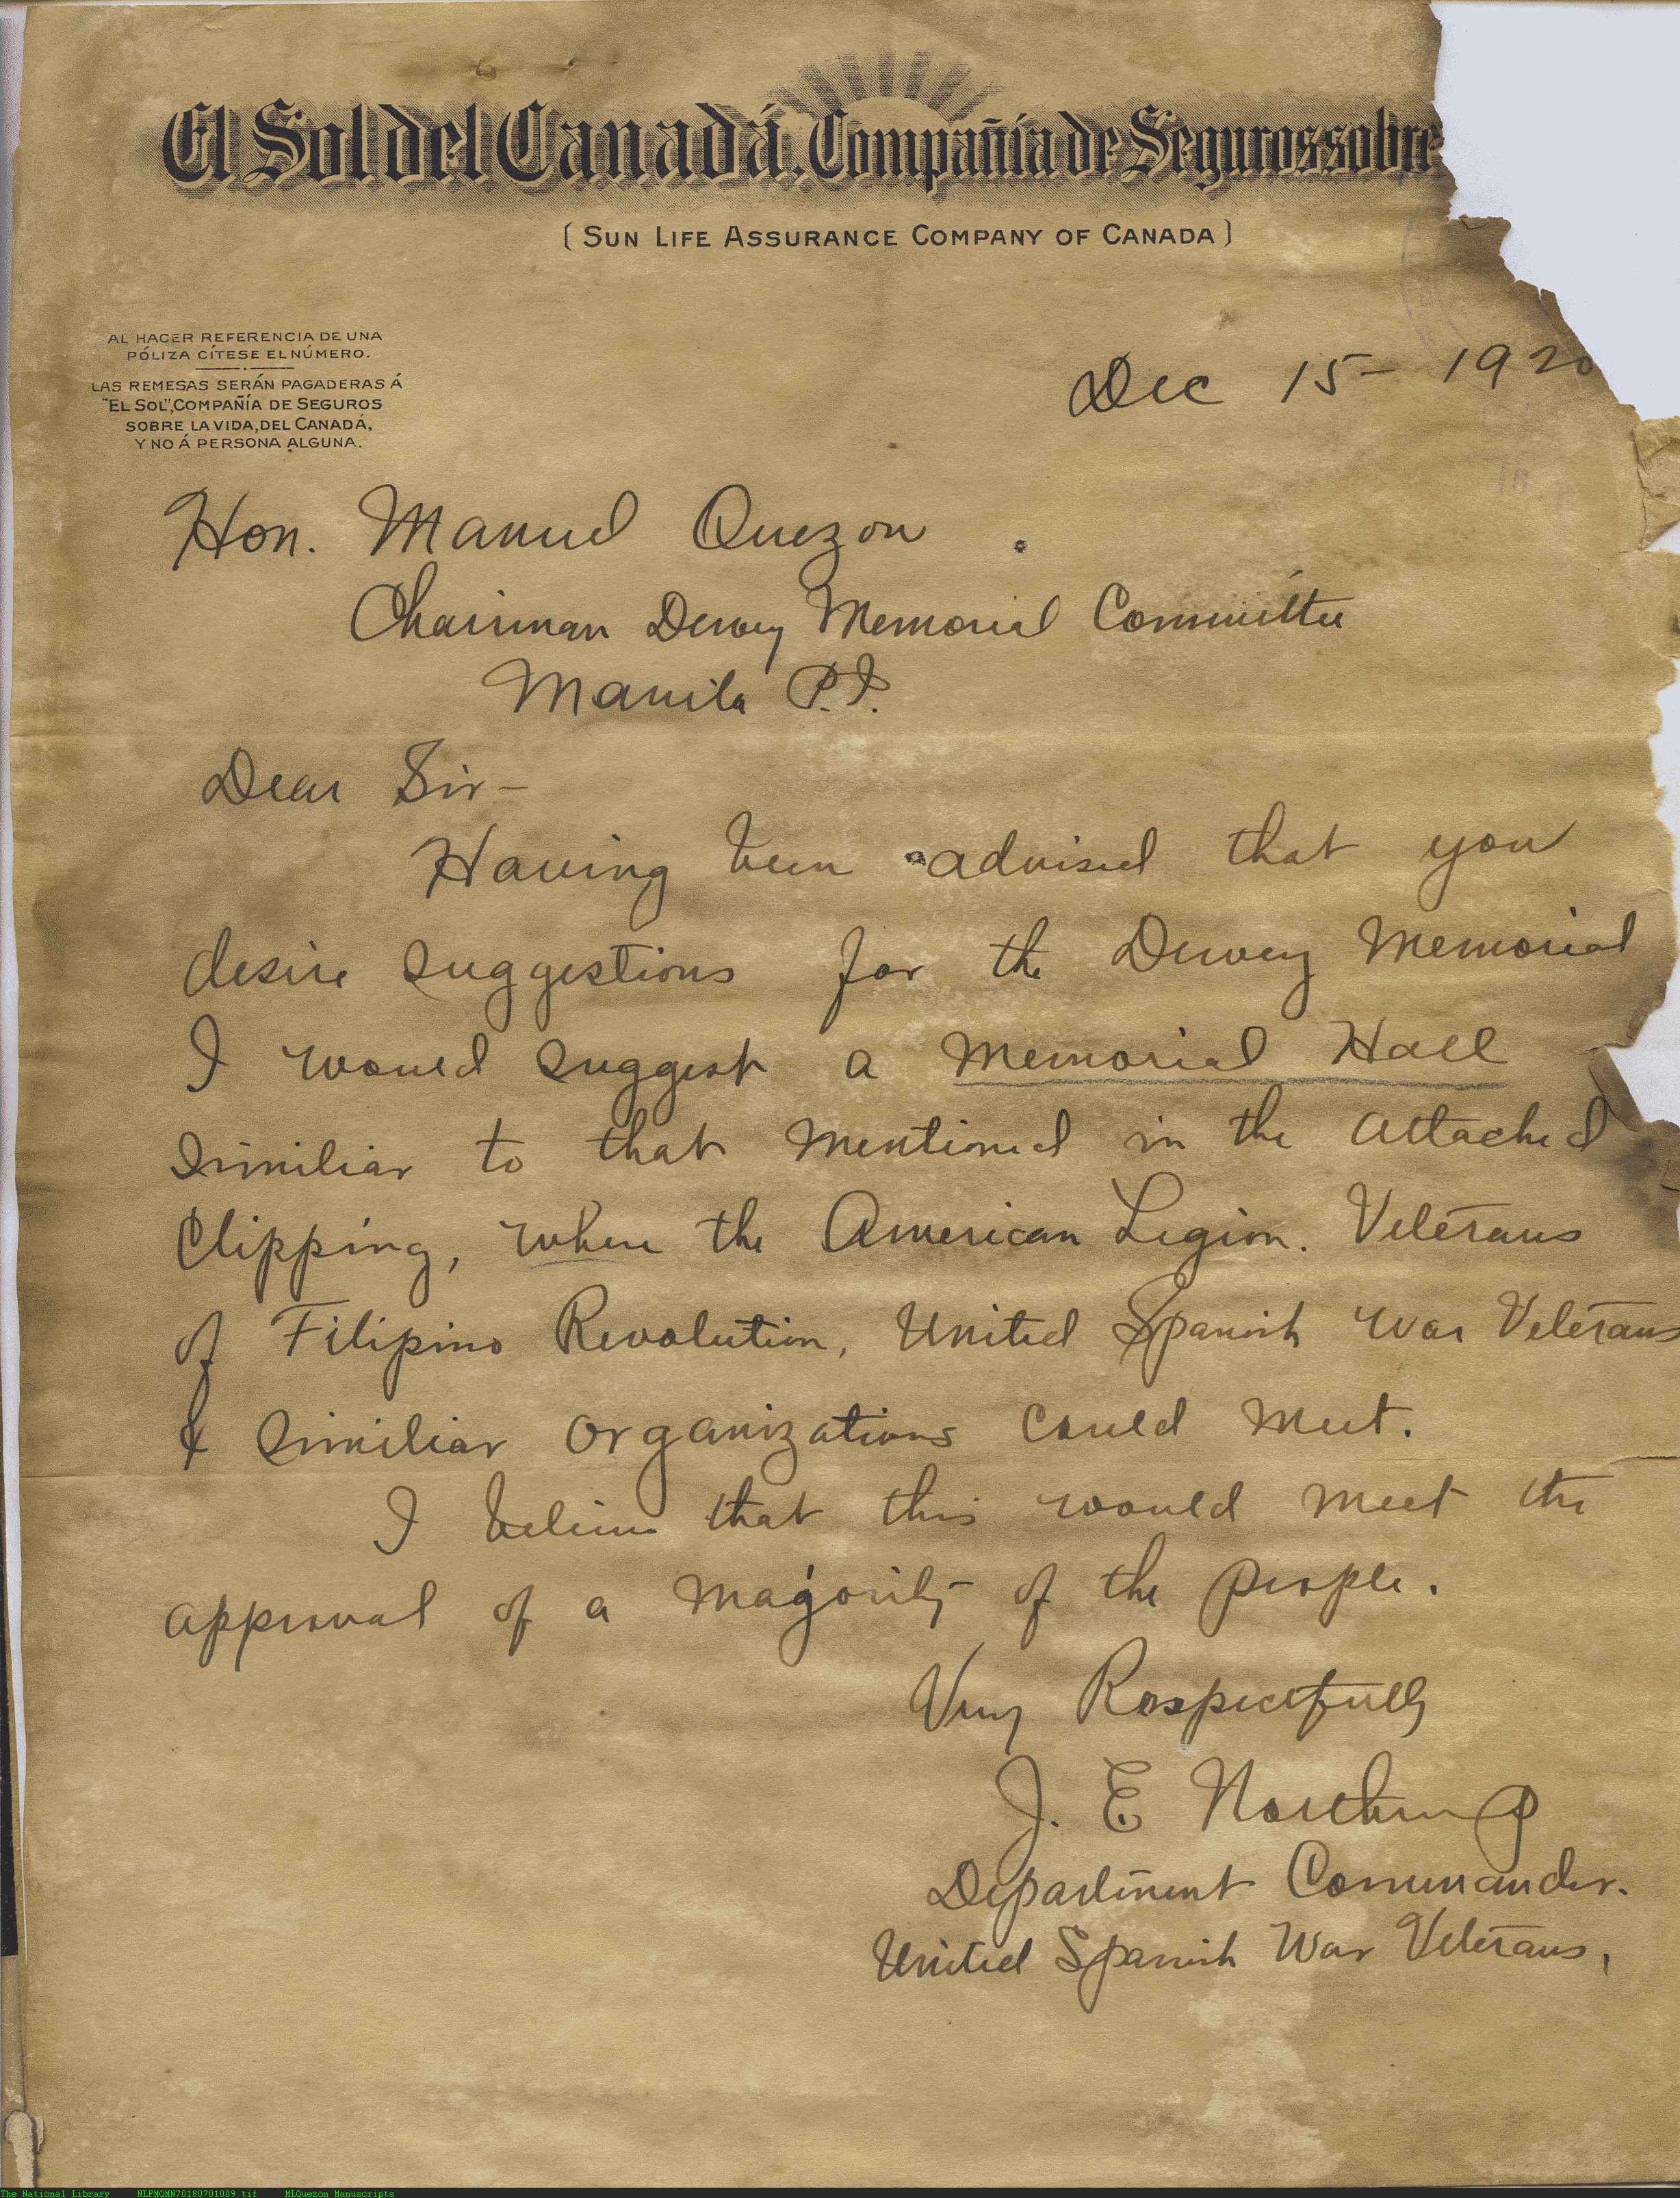 El Sol del Canadá, Compañía de Seguros sobre
(SUN LIFE ASSURANCE COMPANY OF CANADA)
AL HACER REFERENCIA DE UNA
PÓLIZA CÍTESE EL NÚMERO.
LAS REMESAS SERÁN PAGADERAS Á
"EL SOL", COMPAÑÍA DE SEGUROS
SOBRE LA VIDA, DEL CANADÁ,
Y NO Á PERSONA ALGUNA.
Dec 15 - 1920
Hon. Manuel Quezon
Chairman Dewey Memorial Committee
Manila P.I.
Dear Sir -
Having been advised that you
desire suggestions for the Dewey Memorial
I would suggest a Memorial Hall
similiar to that mentioned in the attached
clipping, where the American Legion. Veterans
of Filipino Revolution, United Spanish War Veterans
& similiar organizations could meet.
I believe that this would meet the
approval of a majority of the people.
Very Respectfully
J. E. Northrup
Department Commander.
United Spanish War Veterans,
The National Library NLPMQMN70180701009.tif MLQuezon Manuscripts